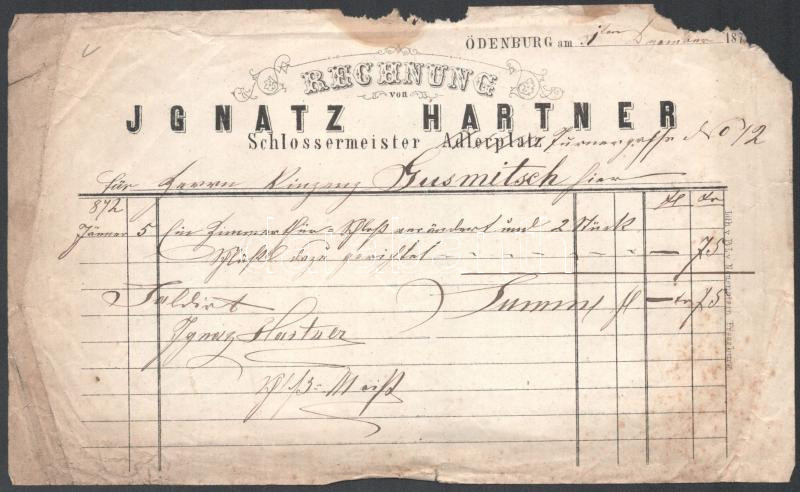 ÖDENBURG am 1ten Dezember 187
RECHNUNG
von
JGNATZ HARTNER
Schlossermeister Adlerplatz Turnergasse No 12
für Herrn Vinzenz Gusmitsch hier
872 fl Kr
Jänner 5 Ein Zimmerthür=Schloß verändert und 2 Stück
Schlüßl dazu gerichtet — 75
Saldirt Summe fl — Kr 75
Ignaz Hartner
Schloß=Meist